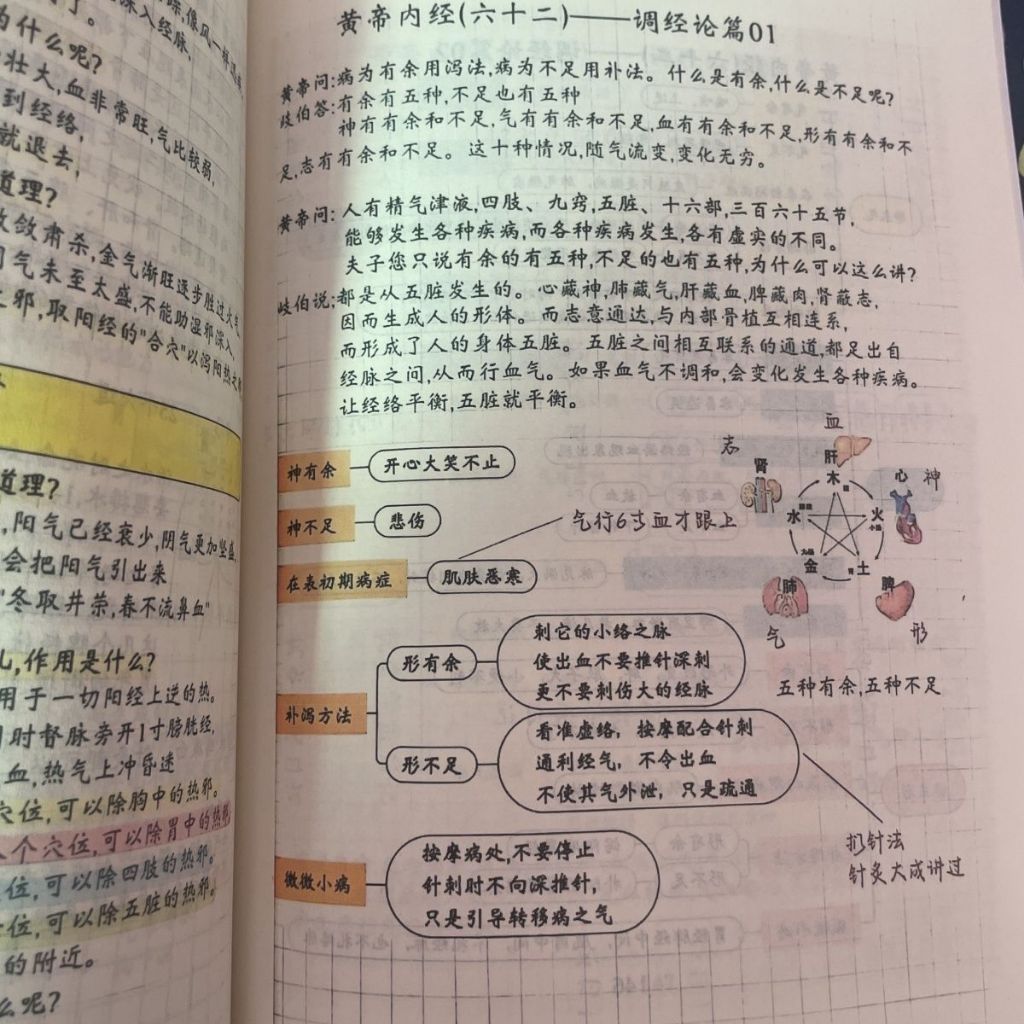 为什么呢?
壮大,血非常旺,气比较弱,
到经络,
就退去,
道理?
敛肃杀,金气渐旺逐步胜过火气
气未至太盛,不能助湿邪深入,
之邪,取阳经的"合穴"以泻阳热之
道理?
,阳气已经衰少,阴气更加坚盛,
会把阳气引出来
"冬取井荥,春不流鼻血"
,作用是什么?
用于一切阳经上逆的热。
时督脉旁开1寸膀胱经,
血,热气上冲昏迷
穴位,可以除胸中的热邪。
个穴位,可以除胃中的热邪
位,可以除四肢的热邪。
位,可以除五脏的热邪。
的附近。
么呢?
黄帝内经(六十二)——调经论篇01
黄帝问:病为有余用泻法,病为不足用补法。什么是有余,什么是不足呢?
岐伯答:有余有五种,不足也有五种
神有有余和不足,气有有余和不足,血有有余和不足,形有有余和不
足,志有有余和不足。这十种情况,随气流变,变化无穷。
黄帝问:人有精气津液,四肢、九窍,五脏、十六部,三百六十五节,
能够发生各种疾病,而各种疾病发生,各有虚实的不同。
夫子您只说有余的有五种,不足的也有五种,为什么可以这么讲?
岐伯说:都是从五脏发生的。心藏神,肺藏气,肝藏血,脾藏肉,肾蔽志,
因而生成人的形体。而志意通达,与内部骨植互相连系,
而形成了人的身体五脏。五脏之间相互联系的通道,都足出自
经脉之间,从而行血气。如果血气不调和,会变化发生各种疾病。
让经络平衡,五脏就平衡。
神有余
开心大笑不止
神不足
悲伤
在表初期病症
肌肤恶寒
气行6寸血才跟上
血
肝
木
志
肾
水
心
神
火
金
土
肺
气
脾
形
五种有余,五种不足
补泻方法
形有余
刺它的小络之脉
使出血不要推针深刺
更不要刺伤大的经脉
形不足
看准虚络,按摩配合针刺
通利经气,不令出血
不使其气外泄,只是疏通
扪针法
针灸大成讲过
微微小病
按摩病处,不要停止
针刺时不向深推针,
只是引导转移病之气